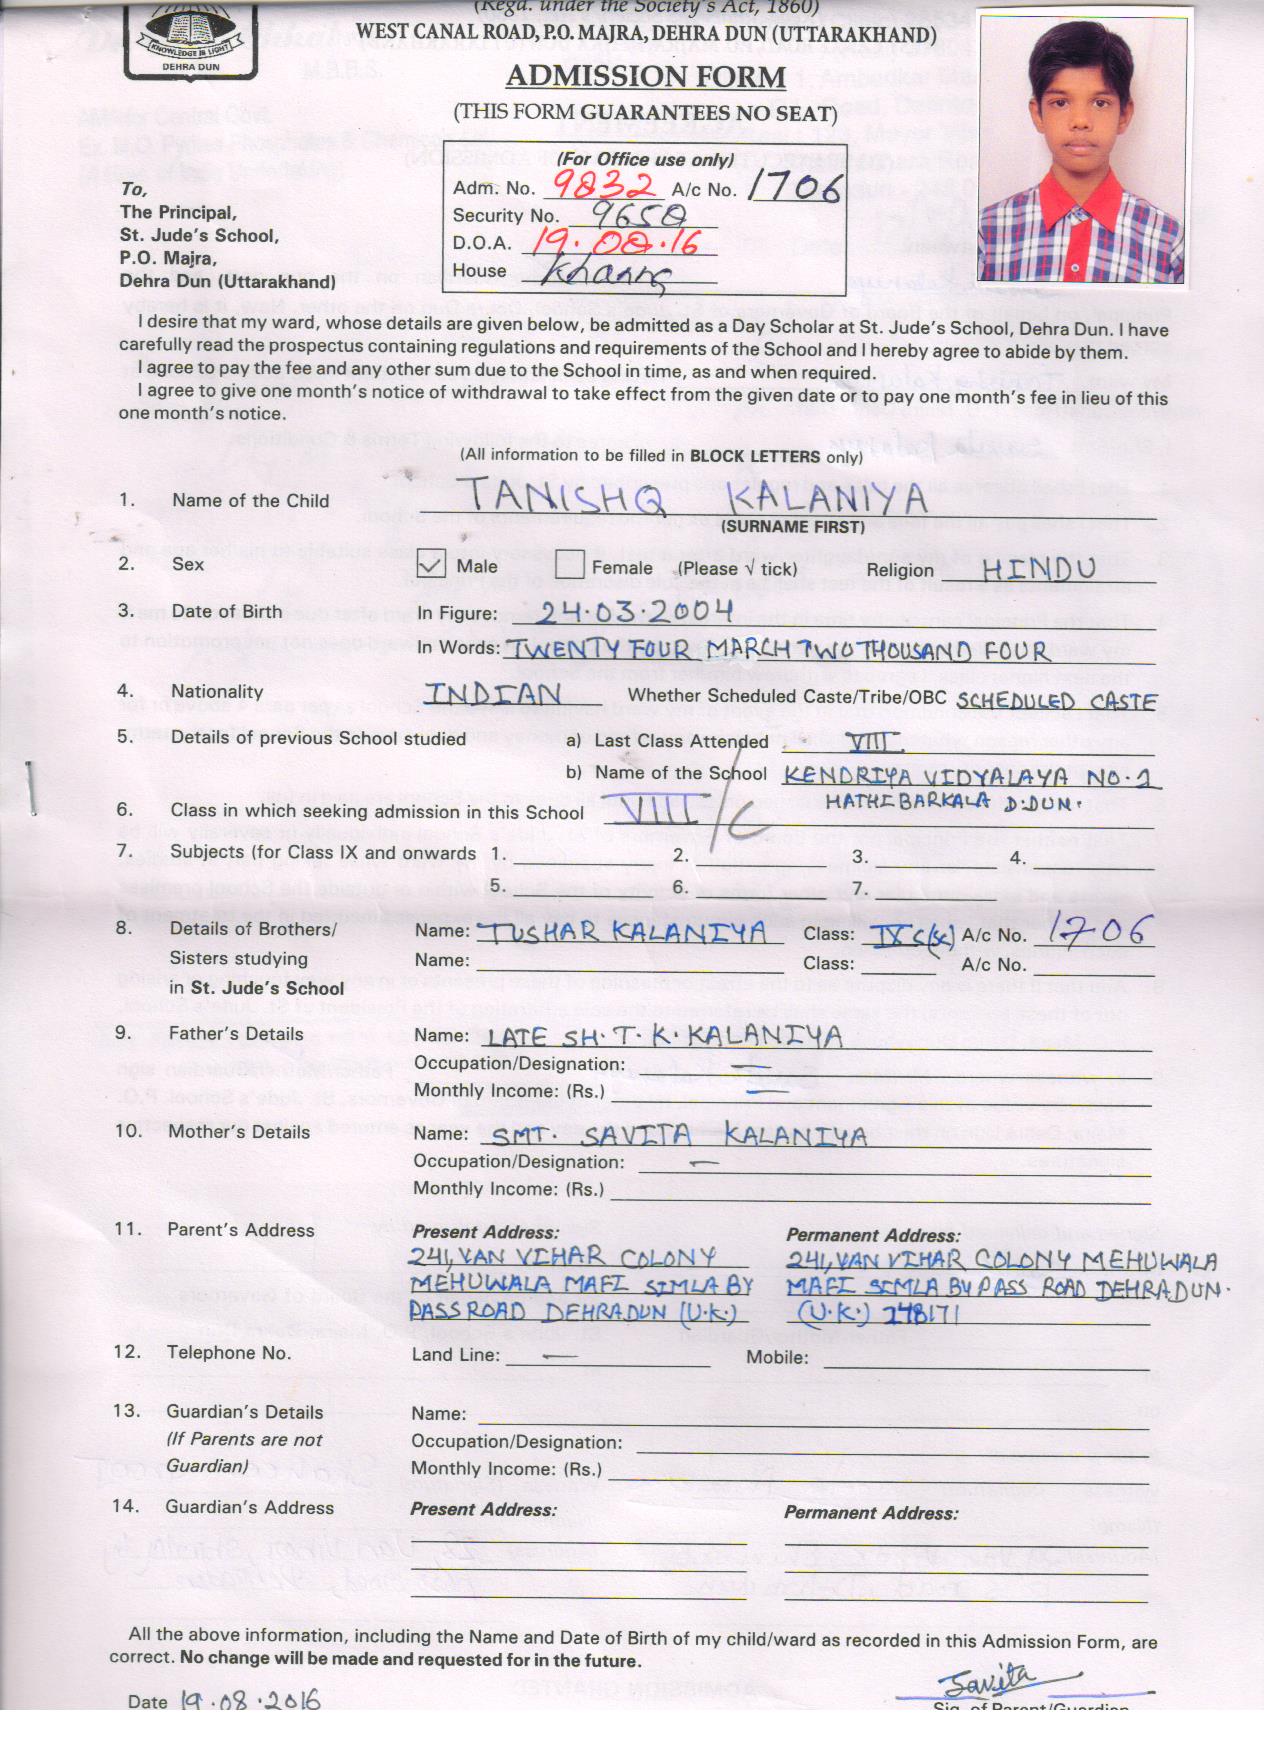 (Regd. under the Society's Act, 1860)
WEST CANAL ROAD, P.O. MAJRA, DEHRA DUN (UTTARAKHAND)
KNOWLEDGE IS LIGHT
DEHRA DUN
ADMISSION FORM
(THIS FORM GUARANTEES NO SEAT)
(For Office use only)
Adm. No. 9832 A/c No. 1706
Security No. 9650
D.O.A. 19.08.16
House
To,
The Principal,
St. Jude's School,
P.O. Majra,
Dehra Dun (Uttarakhand)
I desire that my ward, whose details are given below, be admitted as a Day Scholar at St. Jude's School, Dehra Dun. I have
carefully read the prospectus containing regulations and requirements of the School and I hereby agree to abide by them.
I agree to pay the fee and any other sum due to the School in time, as and when required.
I agree to give one month's notice of withdrawal to take effect from the given date or to pay one month's fee in lieu of this
one month's notice.
(All information to be filled in BLOCK LETTERS only)
1. Name of the Child TANISHQ KALANIYA
(SURNAME FIRST)
2. Sex ✓ Male Female (Please √ tick) Religion HINDU
3. Date of Birth In Figure: 24.03.2004
In Words: TWENTY FOUR MARCH TWO THOUSAND FOUR
4. Nationality INDIAN Whether Scheduled Caste/Tribe/OBC SCHEDULED CASTE
5. Details of previous School studied a) Last Class Attended VIII.
b) Name of the School KENDRIYA VIDYALAYA NO.1
HATHIBARKALA D.DUN.
6. Class in which seeking admission in this School VIII/C
7. Subjects (for Class IX and onwards 1. 2. 3. 4.
5. 6. 7.
8. Details of Brothers/ Name: TUSHAR KALANIYA Class: IX C(Sc) A/c No. 1706
Sisters studying Name: Class: A/c No.
in St. Jude's School
9. Father's Details Name: LATE SH. T. K. KALANIYA
Occupation/Designation: —
Monthly Income: (Rs.) —
10. Mother's Details Name: SMT. SAVITA KALANIYA
Occupation/Designation: —
Monthly Income: (Rs.)
11. Parent's Address Present Address: Permanent Address:
241, VAN VIHAR COLONY 241, VAN VIHAR COLONY MEHUWALA
MEHUWALA MAFI SIMLA BY MAFI SIMLA BY PASS ROAD DEHRADUN.
PASS ROAD DEHRADUN (U.K.) (U.K.) 248171
12. Telephone No. Land Line: — Mobile:
13. Guardian's Details Name:
(If Parents are not Occupation/Designation:
Guardian) Monthly Income: (Rs.)
14. Guardian's Address Present Address: Permanent Address:
All the above information, including the Name and Date of Birth of my child/ward as recorded in this Admission Form, are
correct. No change will be made and requested for in the future.
Savita
Date 19.08.2016 Sig. of Parent/Guardian